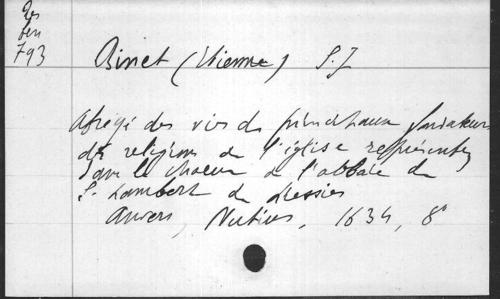 Res
793
Binet (Etienne) S.J
Abrégé des vies de principaux fondateurs
des religions de l'église représentez
dans le choeur de l'abbaie de
S. Lambert de Liessies
Anvers, Nutius, 1634, 8°